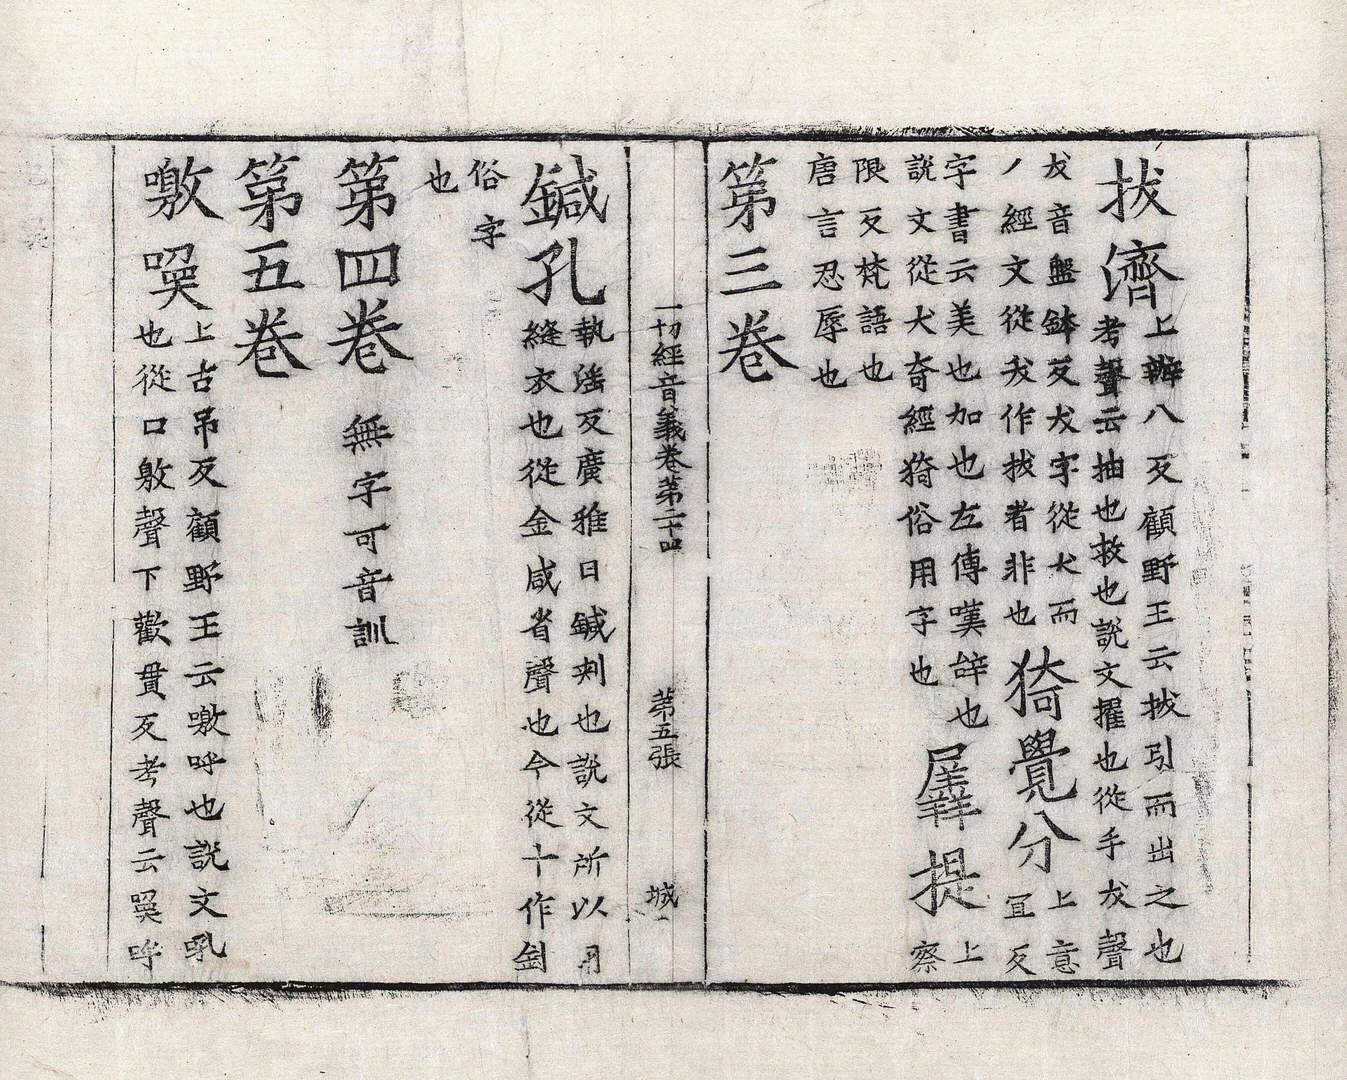 拔濟上辦八反顧野王云拔引而出之也
考聲云抽也救也說文擢也從手犮聲
犮音盤鉢反犮字從犬而
丿經文從犮作拔者非也
猗覺分上意
宜反
字書云美也加也左傳嘆辝也
說文從犬奇經猗俗用字也
羼提上
察
限反梵語也
唐言忍辱也
第三卷
一切經音義卷第二十四 第五張 城
鍼孔執滛反廣雅曰鍼刺也說文所以用
縫衣也從金咸省聲也今從十作釗
俗字
也
第四卷 無字可音訓
第五卷
噭㗛上古吊反顧野王云噭呼也說文吼
也從口敫聲下歡貫反考聲云㗛呼